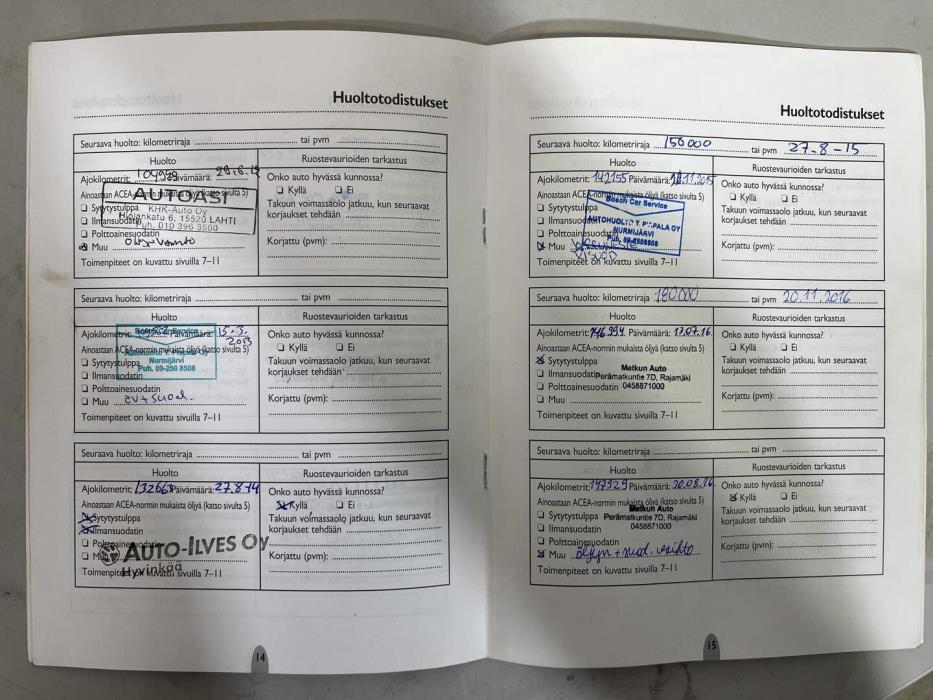 Huoltotodistukset
Seuraava huolto: kilometriraja tai pvm
Huolto Ruostevaurioiden tarkastus
Ajokilometrit: Päivämäärä:
Onko auto hyvässä kunnossa?
Ainoastaan ACEA-normin mukaista öljyä (katso sivulta 5)
❑ Kyllä ❑ Ei
AUTOASI
KHK-Auto Oy
Hiojankatu 6, 15520 LAHTI
Puh. 010 396 3500
❑ Sytytystulppa
Takuun voimassaolo jatkuu, kun seuraavat
❑ Ilmansuodatin
korjaukset tehdään
❑ Polttoainesuodatin
❑ Muu
Korjattu (pvm):
Toimenpiteet on kuvattu sivuilla 7–11
Seuraava huolto: kilometriraja tai pvm
Huolto Ruostevaurioiden tarkastus
Ajokilometrit: Päivämäärä: 15.3. 2013
Onko auto hyvässä kunnossa?
Ainoastaan ACEA-normin mukaista öljyä (katso sivulta 5)
❑ Kyllä ❑ Ei
Bosch Car Service
Autohuolto T. Piipala Oy
Nurmijärvi
Puh. 09-250 8508
❑ Sytytystulppa
Takuun voimassaolo jatkuu, kun seuraavat
❑ Ilmansuodatin
korjaukset tehdään
❑ Polttoainesuodatin
❑ Muu öv + suod.
Korjattu (pvm):
Toimenpiteet on kuvattu sivuilla 7–11
Seuraava huolto: kilometriraja tai pvm
Huolto Ruostevaurioiden tarkastus
Ajokilometrit: 132663 Päivämäärä: 27.8-14
Onko auto hyvässä kunnossa?
Ainoastaan ACEA-normin mukaista öljyä (katso sivulta 5)
Kyllä ❑ Ei
Sytytystulppa
Takuun voimassaolo jatkuu, kun seuraavat
Ilmansuodatin
korjaukset tehdään
❑ Polttoainesuodatin
❑ Muu
AUTO-ILVES Oy
Hyvinkää
Korjattu (pvm):
Toimenpiteet on kuvattu sivuilla 7–11
14
Huoltotodistukset
Seuraava huolto: kilometriraja 150000 tai pvm 27-8-15
Huolto Ruostevaurioiden tarkastus
Ajokilometrit: 142155 Päivämäärä:
Onko auto hyvässä kunnossa?
Ainoastaan ACEA-normin mukaista öljyä (katso sivulta 5)
❑ Kyllä ❑ Ei
Bosch Car Service
AUTOHUOLTO T. PIIPALA OY
NURMIJÄRVI
Puh. 09-2508508
❑ Sytytystulppa
Takuun voimassaolo jatkuu, kun seuraavat
❑ Ilmansuodatin
korjaukset tehdään
❑ Polttoainesuodatin
Muu
Korjattu (pvm):
Toimenpiteet on kuvattu sivuilla 7–11
Seuraava huolto: kilometriraja tai pvm 20.11.2016
Huolto Ruostevaurioiden tarkastus
Ajokilometrit: 146994 Päivämäärä:
Onko auto hyvässä kunnossa?
Ainoastaan ACEA-normin mukaista öljyä (katso sivulta 5)
❑ Kyllä ❑ Ei
Sytytystulppa
Takuun voimassaolo jatkuu, kun seuraavat
❑ Ilmansuodatin
korjaukset tehdään
Matkun Auto
Perämatkuntie 7D, Rajamäki
0458871000
❑ Polttoainesuodatin
❑ Muu
Korjattu (pvm):
Toimenpiteet on kuvattu sivuilla 7–11
Seuraava huolto: kilometriraja tai pvm
Huolto Ruostevaurioiden tarkastus
Ajokilometrit: 147929 Päivämäärä: 20.08.16
Onko auto hyvässä kunnossa?
Ainoastaan ACEA-normin mukaista öljyä (katso sivulta 5)
Kyllä ❑ Ei
Matkun Auto
Perämatkuntie 7D, Rajamäki
0458871000
❑ Sytytystulppa
Takuun voimassaolo jatkuu, kun seuraavat
❑ Ilmansuodatin
korjaukset tehdään
❑ Polttoainesuodatin
Muu öljyn + suod. vaihto
Korjattu (pvm):
Toimenpiteet on kuvattu sivuilla 7–11
15